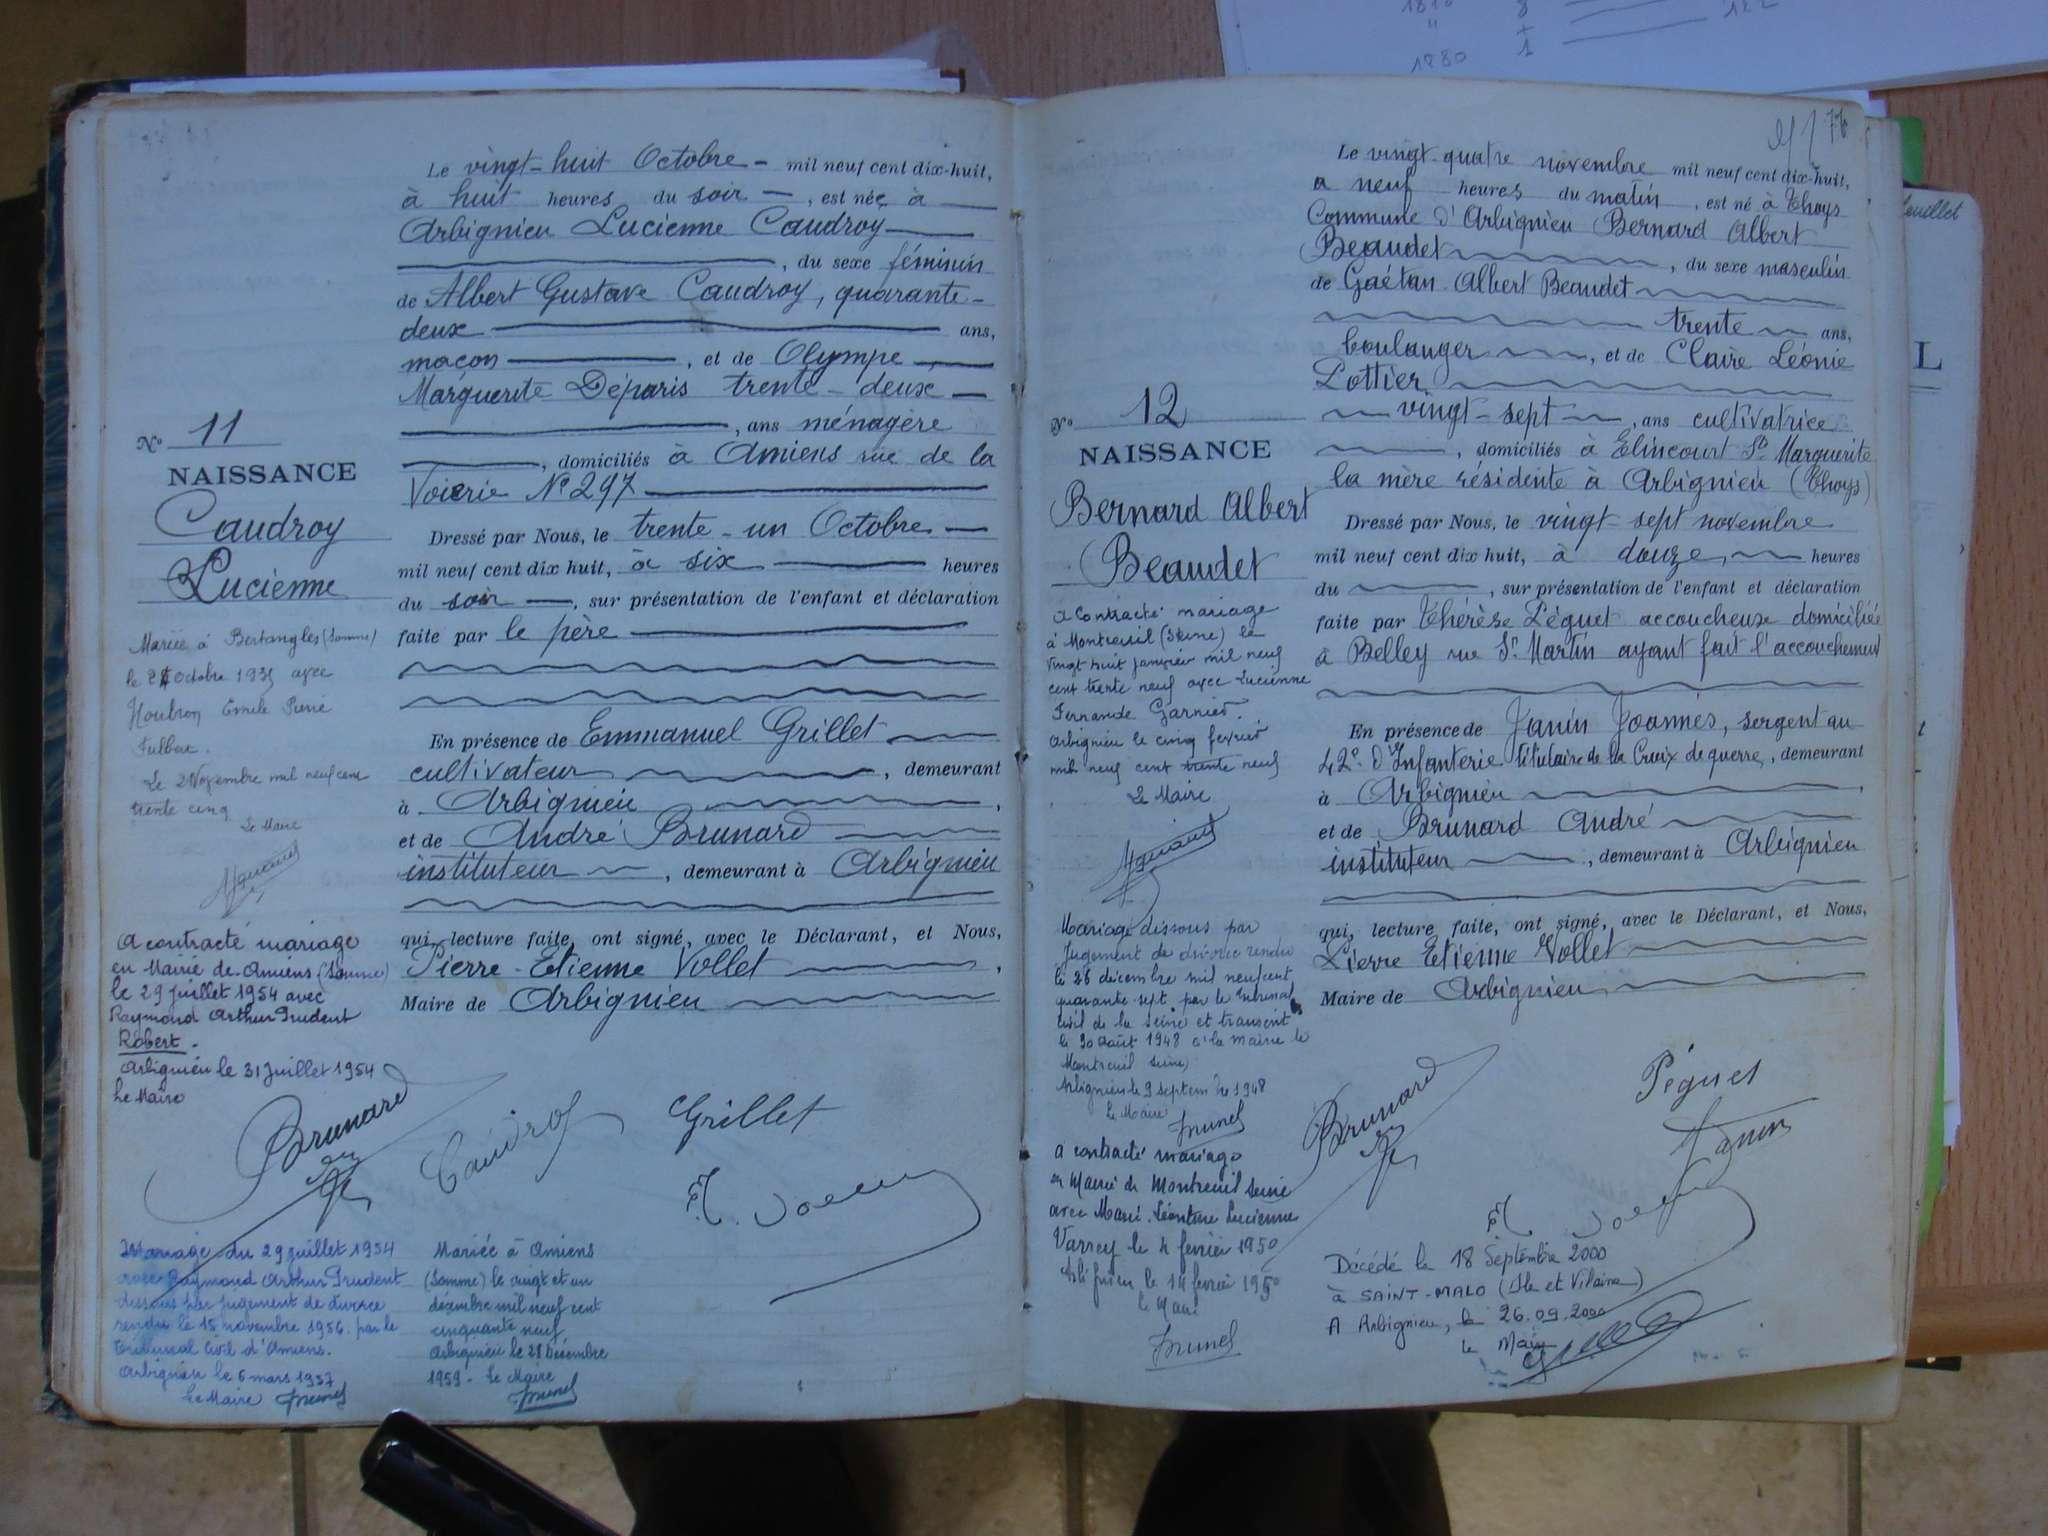 1880 1
Le vingt-huit Octobre - mil neuf cent dix-huit,
à huit heures du soir, est née à
Arbignieu Lucienne Caudroy
, du sexe féminin
de Albert Gustave Caudroy, quarante-
deux ans,
maçon, et de Olympe
Marguerite Déparis trente-deux
, ans ménagère
, domiciliés à Amiens rue de la
Voierie N° 297
Dressé par Nous, le trente-un Octobre
mil neuf cent dix huit, à six heures
du soir, sur présentation de l'enfant et déclaration
faite par le père
En présence de Emmanuel Grillet
cultivateur, demeurant
à Arbignieu,
et de André Brunard
instituteur, demeurant à Arbignieu
qui, lecture faite, ont signé, avec le Déclarant, et Nous,
Pierre-Etienne Vollet,
Maire de Arbignieu
N° 11
NAISSANCE
Caudroy
Lucienne
Mariée à Bertangles (Somme)
le Octobre 1935 avec
Houbron Emile René
Le 2 Novembre mil neuf cent
trente cinq
Le Maire
A contracté mariage
en Mairie de Amiens (Somme)
le 29 Juillet 1954 avec
Raymond Arthur Prudent
Robert.
Arbignieu le 31 Juillet 1954
Le Maire
Brunard
Caudroy
Grillet
E. Vollet
Mariage du 29 juillet 1954
avec Raymond Arthur Prudent
dissous par jugement de divorce
rendu le 15 novembre 1956 par le
Tribunal Civil d'Amiens.
Arbignieu le 6 mars 1957
Le Maire Brunel
Mariée à Amiens
(Somme) le vingt et un
décembre mil neuf cent
cinquante neuf
Arbignieu le 28 Décembre
1959 - Le Maire
Brunel
76
Le vingt-quatre novembre mil neuf cent dix-huit,
a neuf heures du matin, est né à Thoys
Commune d'Arbignieu Bernard Albert
Beaudet, du sexe masculin
de Gaétan Albert Beaudet
trente ans,
boulanger, et de Claire Léonie
Lottier
vingt-sept, ans cultivatrice
, domiciliés à Elincourt Ste Marguerite
la mère résidente à Arbignieu (Thoys)
Dressé par Nous, le vingt-sept novembre
mil neuf cent dix huit, à douze, heures
du, sur présentation de l'enfant et déclaration
faite par Thérèse Péguet accoucheuse domiciliée
à Belley rue St Martin ayant fait l'accouchement
En présence de Janin Joannès, sergent au
42e d'Infanterie titulaire de la Croix de guerre, demeurant
à Arbignieu,
et de Brunard André
instituteur, demeurant à Arbignieu
qui, lecture faite, ont signé, avec le Déclarant, et Nous,
Pierre Etienne Vollet
Maire de Arbignieu
N° 12
NAISSANCE
Bernard Albert
Beaudet
A contracté mariage
à Montreuil (Seine) le
vingt huit janvier mil neuf
cent trente neuf avec Lucienne
Fernande Garnier.
Arbignieu le cinq fevrier
mil neuf cent trente neuf
Le Maire
Mariage dissous par
Jugement de divorce rendu
le 26 décembre mil neuf cent
quarante-sept par le Tribunal
Civil de la Seine et transcrit
le 30 Août 1948 à la mairie de
Montreuil Seine)
Arbignieu le 9 septembre 1948
Le Maire
Brunel
A contracté mariage
en Mairie de Montreuil Seine
avec Marie Léontine Lucienne
Varrey le 4 février 1950
Arbignieu le 14 février 1950
le Maire
Brunel
Brunard
Péguet
Janin
E. Vollet
Décédé le 18 Septembre 2000
à SAINT-MALO (Ille et Vilaine)
A Arbignieu, le 26.09.2000
Le Maire
feuillet
L